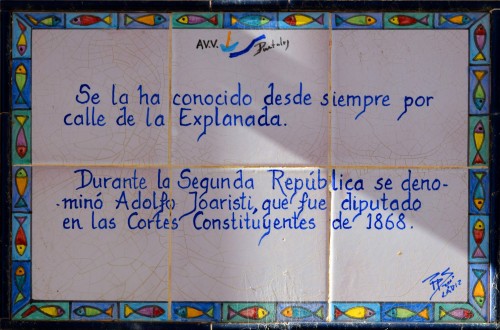 AV.V. Puntales
Se la ha conocido desde siempre por
calle de la Explanada.
Durante la Segunda República se deno-
-minó Adolfo Joaristi, que fue diputado
en las Cortes Constituyentes de 1868.
CADIZ